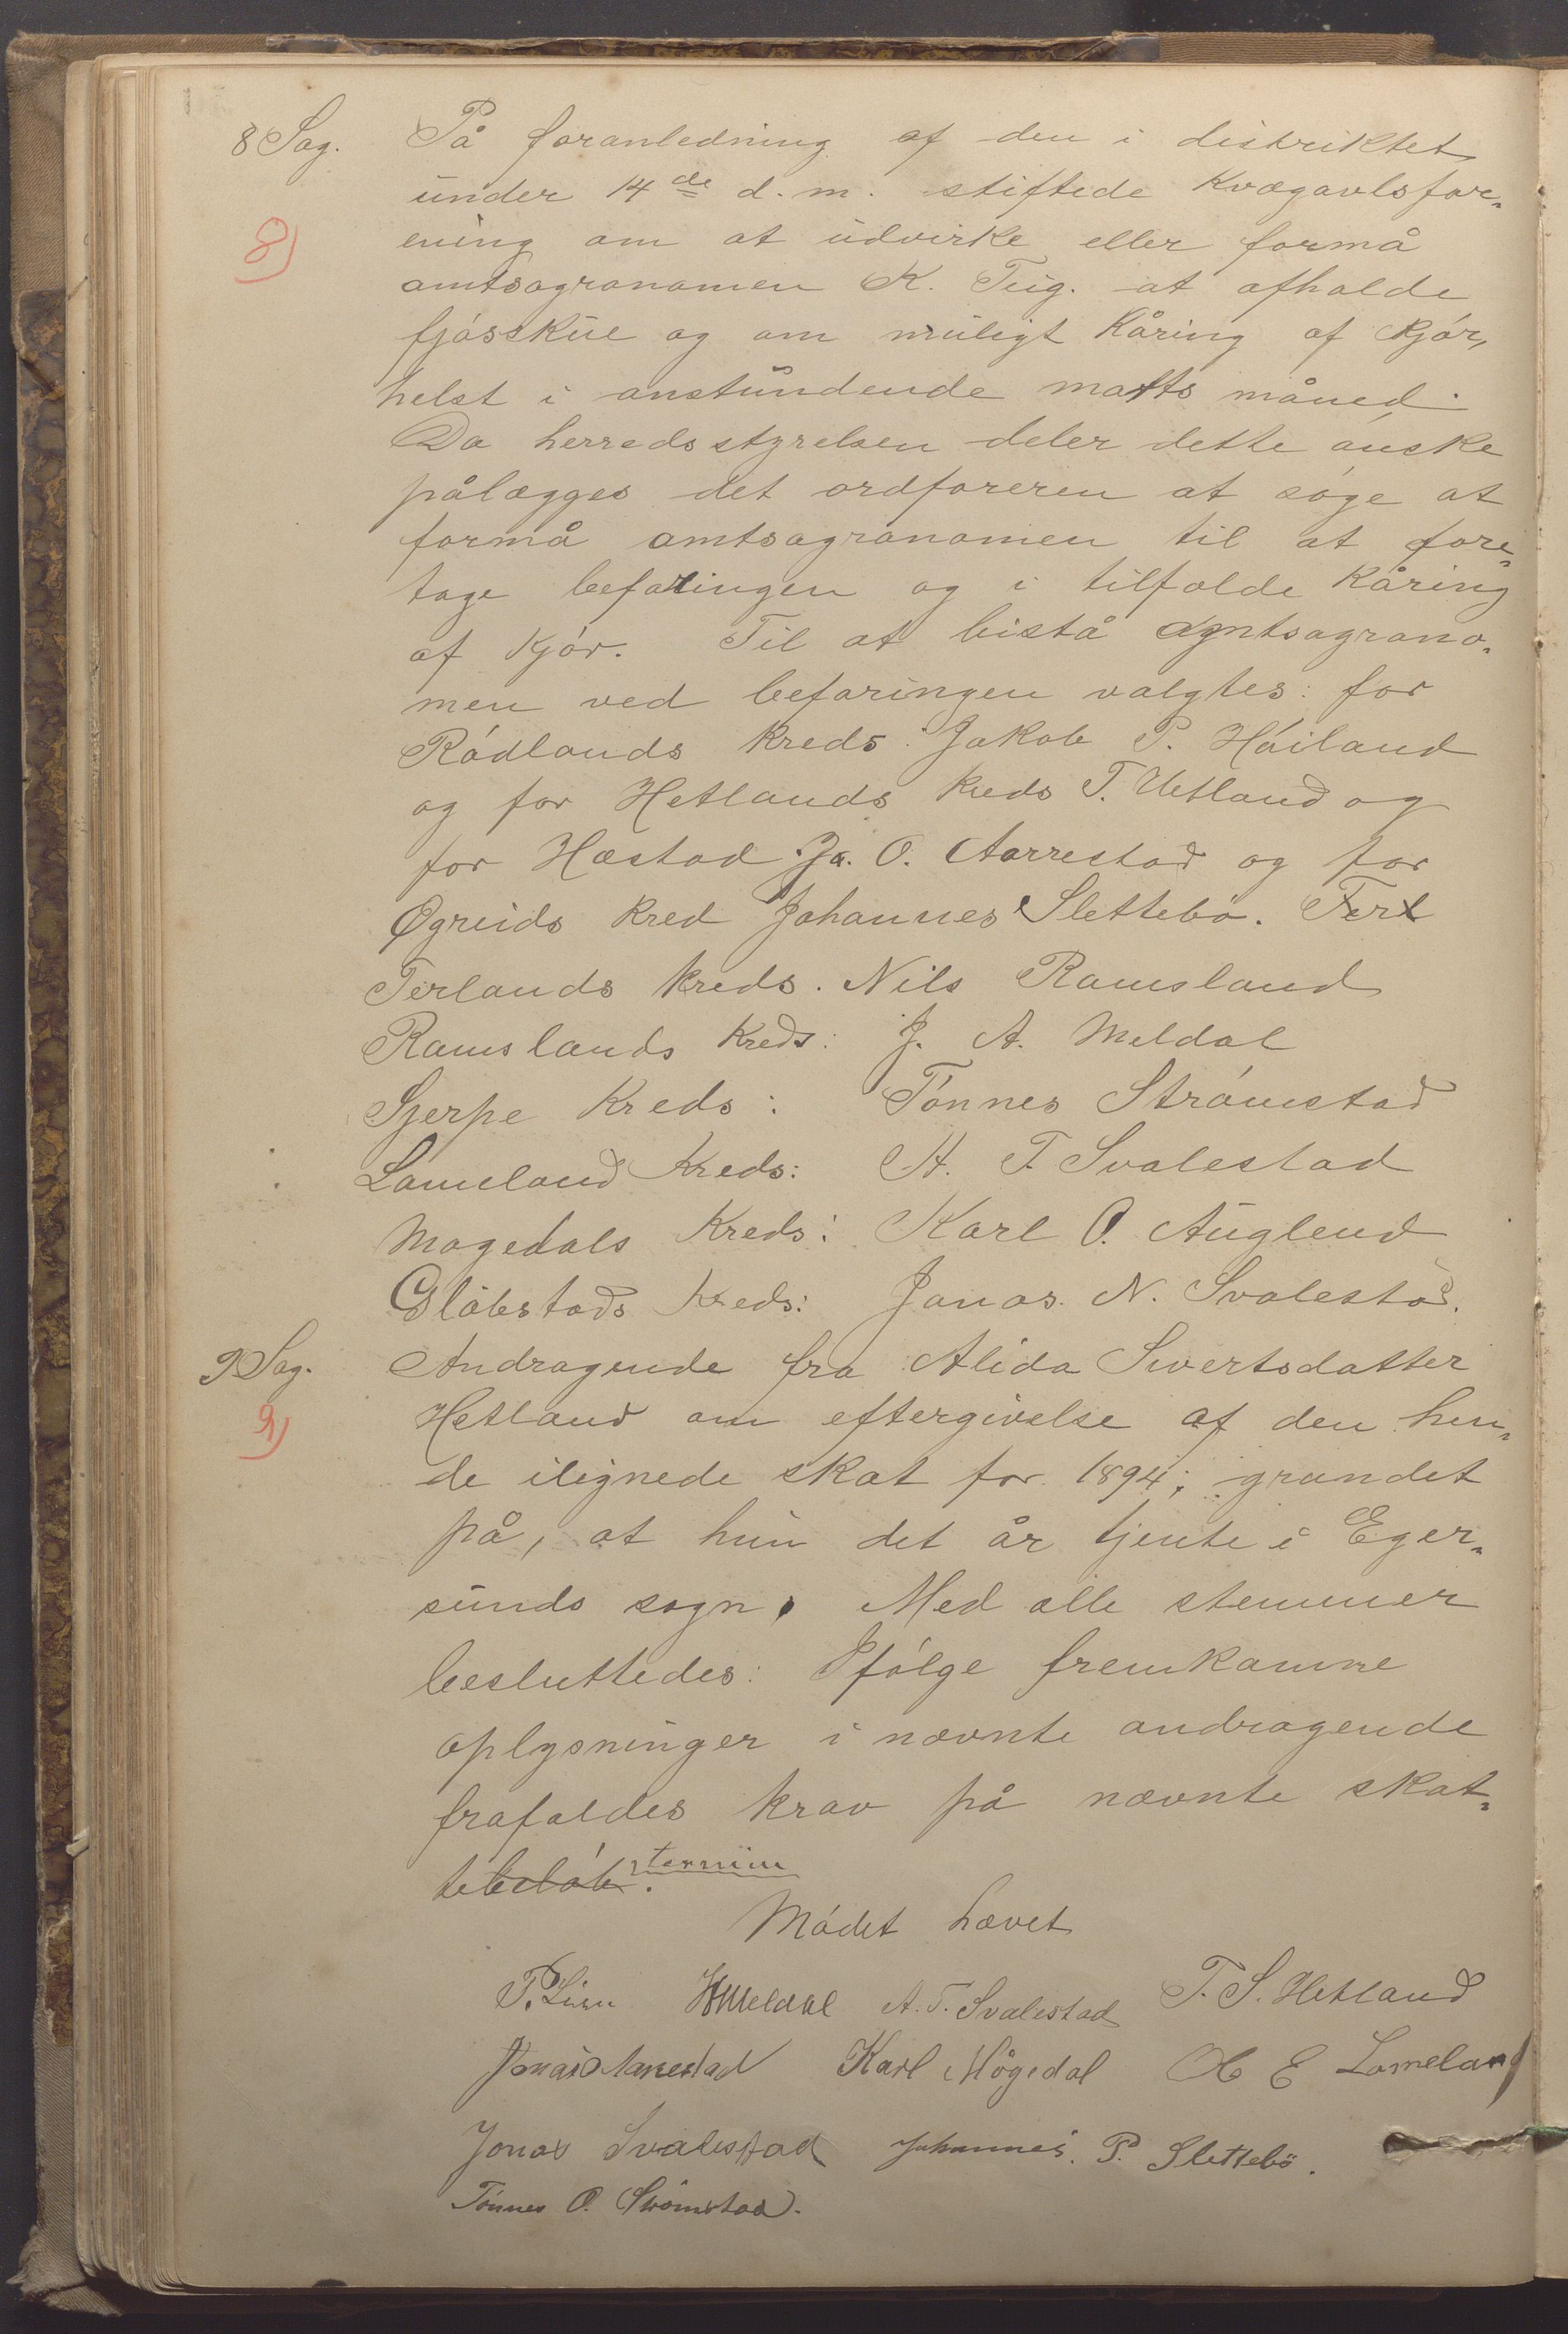 8 Sag. På foranledning af den i distriktet
under 14de d. m. stiftede kvægavlsfor-
8) ening om at udvirke eller formå
amtsagronomen K. Tug. at afholde
fjósskue og om muligt kåring af kjór,
helst i anstundende marts måned.
Da herredsstyrelsen deler dette ónske
pålægges det ordføreren at sóge at
formå amtsagronomen til at fore-
tage befaringen og i tilfælde kåring
af kjór. Til at bistå amtsagrono-
men ved befaringen valgtes: for
Ródlands kreds: Jakob P. Hóiland
og for Hetlands kreds T. Hetland og
for Hæstad Ja. O. Aarrestad og for
Øgreids kred Johannes Slettebø. Terl
Terlands kreds. Nils Ramsland
Ramslands kreds: J. A. Meldal
Gjerpe Kreds: Tónnes Strómstad
Lomeland Kreds: A. T. Svalestad
Mogedals Kreds: Karl O. Auglend
Glóbstads Kreds: Jonas. N. Svalestad.
9 Sag. Andragende fra Alida Sivertsdatter
9) Hetland om eftergivelse af den hen-
de ilignede skat for 1894; grundet
på, at hun det år tjente i Eger-
sunds sogn. Med alle stemmer
besluttedes: Ifólge fremkomne
oplysninger i nævnte andragende
frafaldes krav på nævnte skat-
tebelób. termin
Módet hævet
P. Lien HMeldal A. T. Svalestad T. S. Hetland
Jonas Aarrestad Karl Mógedal O E Lomeland
Jonas Svalestad Johannes. P. Slettebö.
Tónnes O. Strömstad.